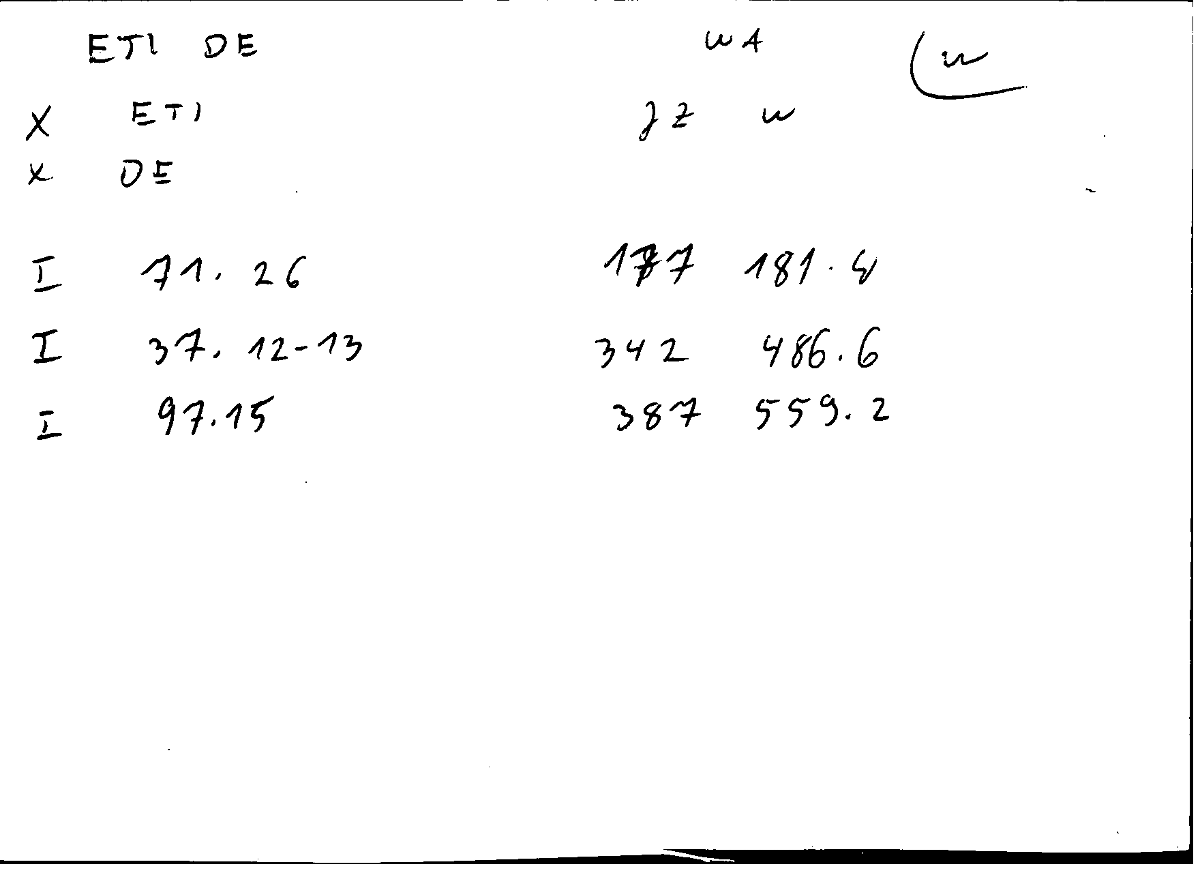 ETI DE WA w
X ETI JZ w
X DE
I 71. 26 181.
I 37. 12-13 342 486.6
I 97.15 387 559.2